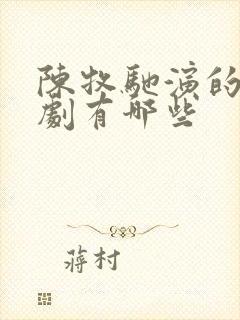 陳牧馳演的
劇有哪些
蔣村